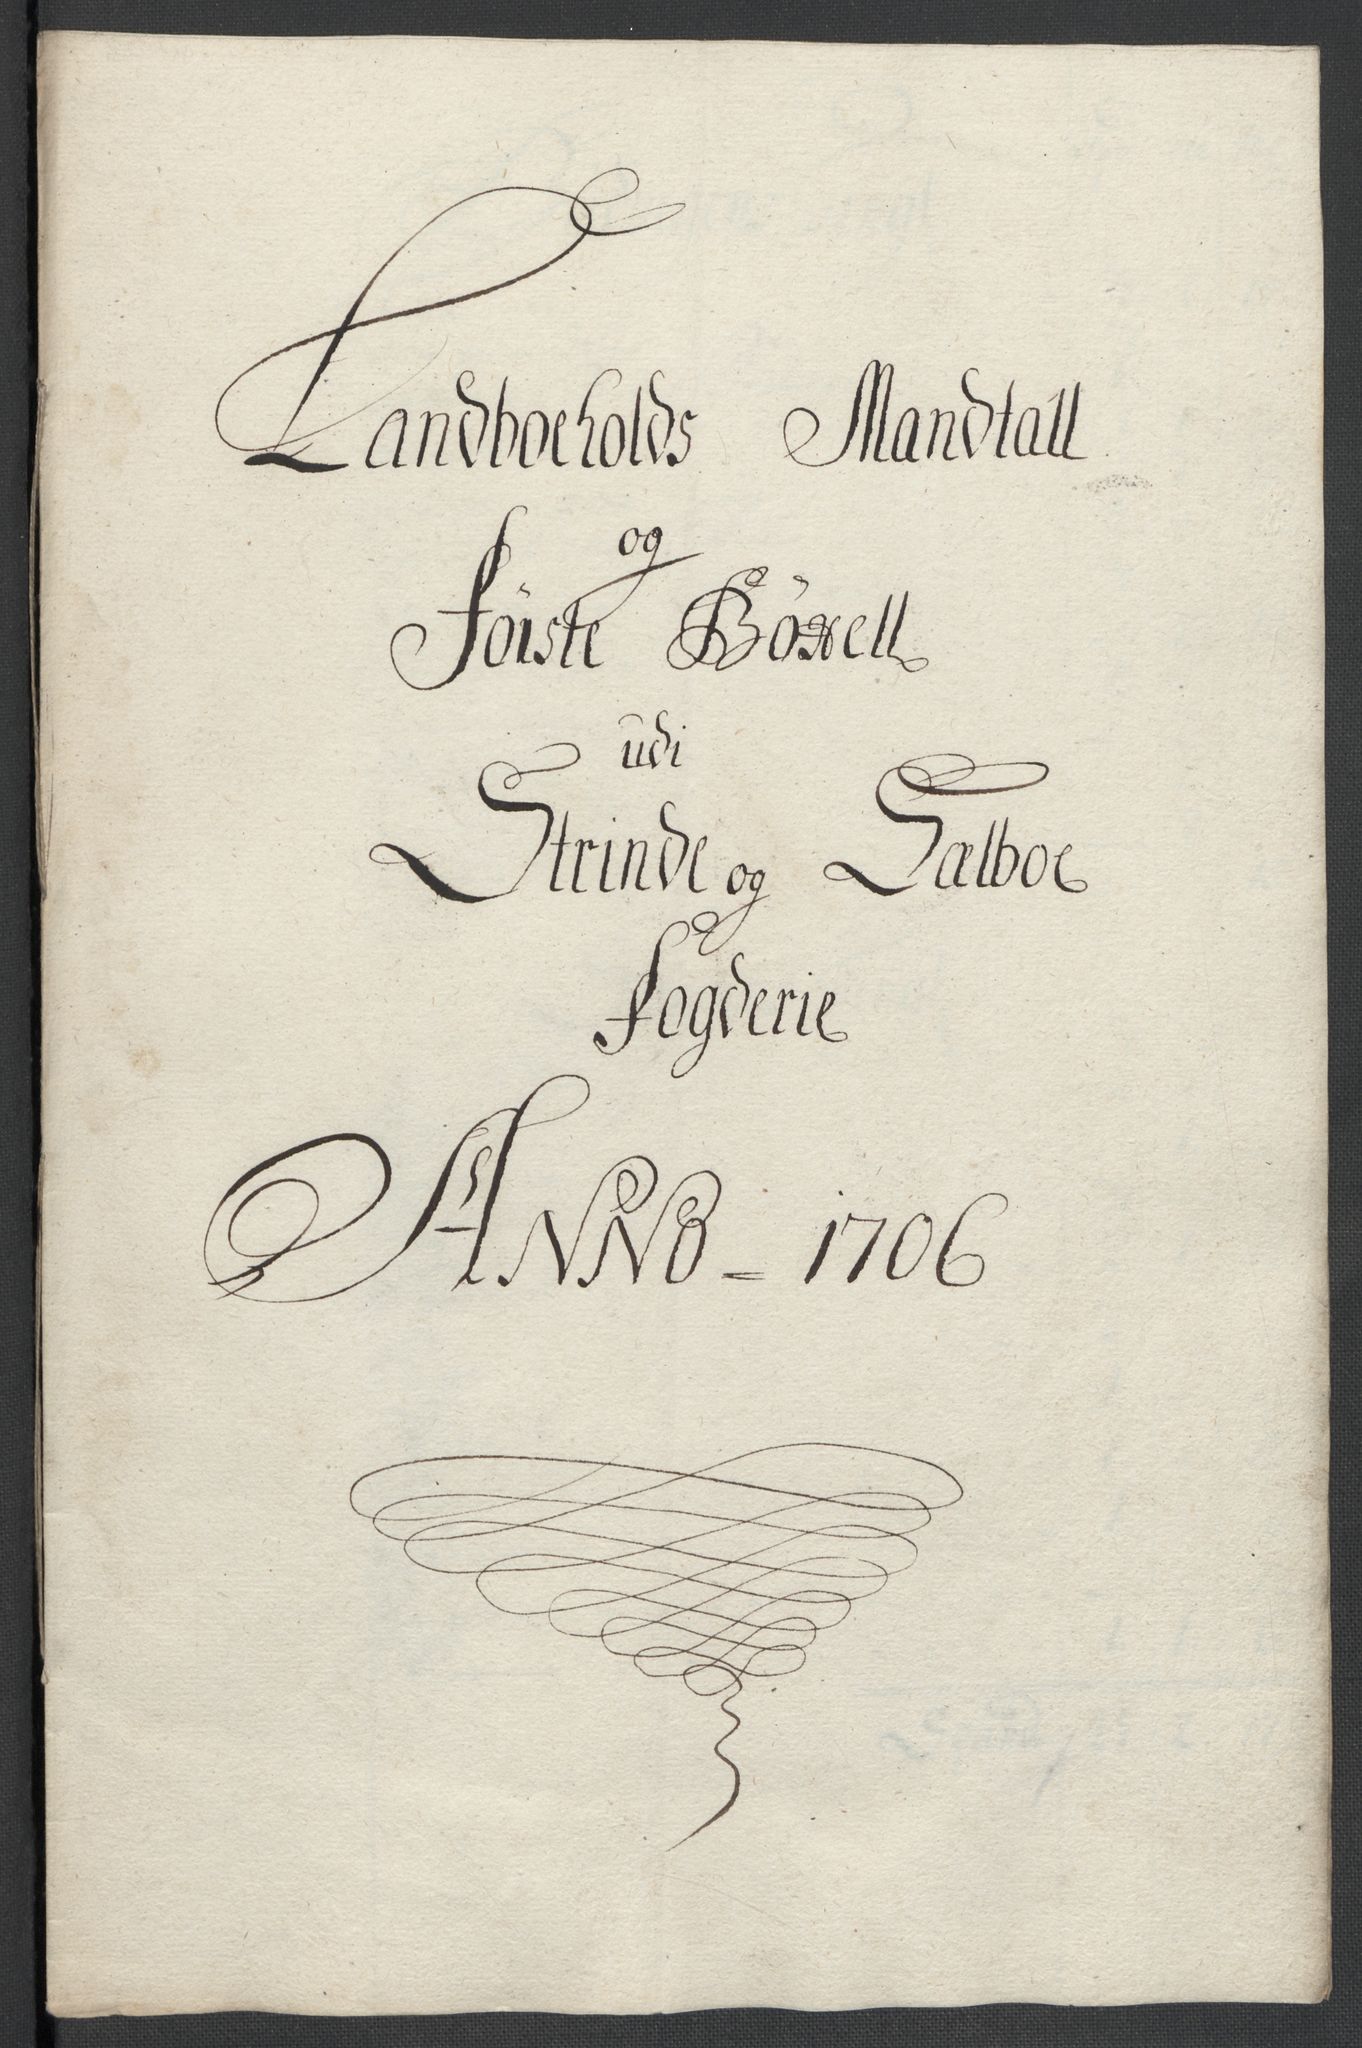 Landboeholds Mandtall
og
Föiste Böxell
udi
Strinde og Sælboe
Fogderie
ANNO = 1706